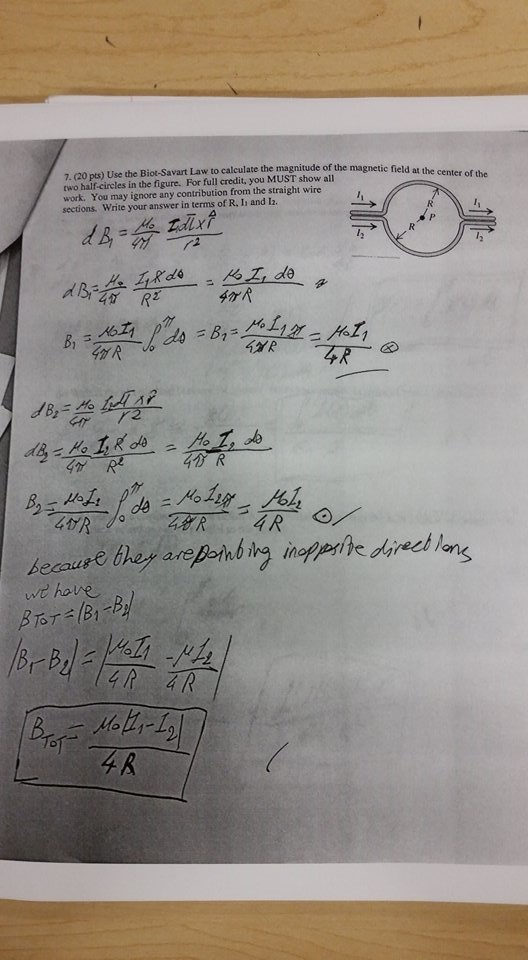 7. (20 pts) Use the Biot-Savart Law to calculate the magnitude of the magnetic field at the center of the
two half-circles in the figure. For full credit, you MUST show all
work. You may ignore any contribution from the straight wire
sections. Write your answer in terms of R, I₁ and I₂.
I₁ R I₁
R P
I₂ I₂
dB₁ = μ₀/4π I₁dl̄×r̂/r²
dB₁ = μ₀/4π I₁R dθ/R² = μ₀ I₁ dθ/4πR
B₁ = μ₀I₁/4πR ∫₀^π dθ = B₁ = μ₀I₁π/4πR = μ₀I₁/4R ⊗
dB₂ = μ₀/4π I₂dl̄×r̂/r²
dB₂ = μ₀/4π I₂R dθ/R² = μ₀ I₂ dθ/4π R
B₂ = μ₀I₂/4πR ∫₀^π dθ = μ₀I₂π/4πR = μ₀I₂/4R ⊙
because they are pointing in opposite directions
we have
B_TOT = |B₁-B₂|
|B₁-B₂| = |μ₀I₁/4R - μI₂/4R|
B_TOT = μ₀|I₁-I₂|/4R